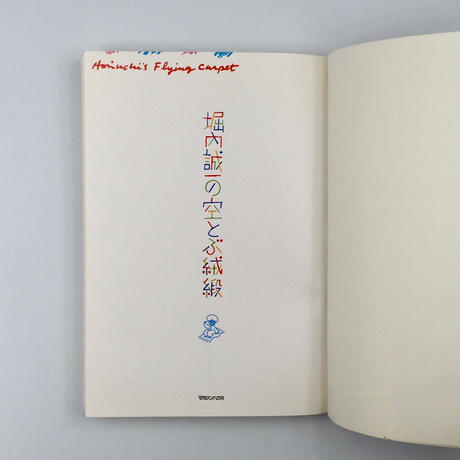 Horiuchi's Flying Carpet
堀内誠一の空とぶ絨緞
マガジンハウス